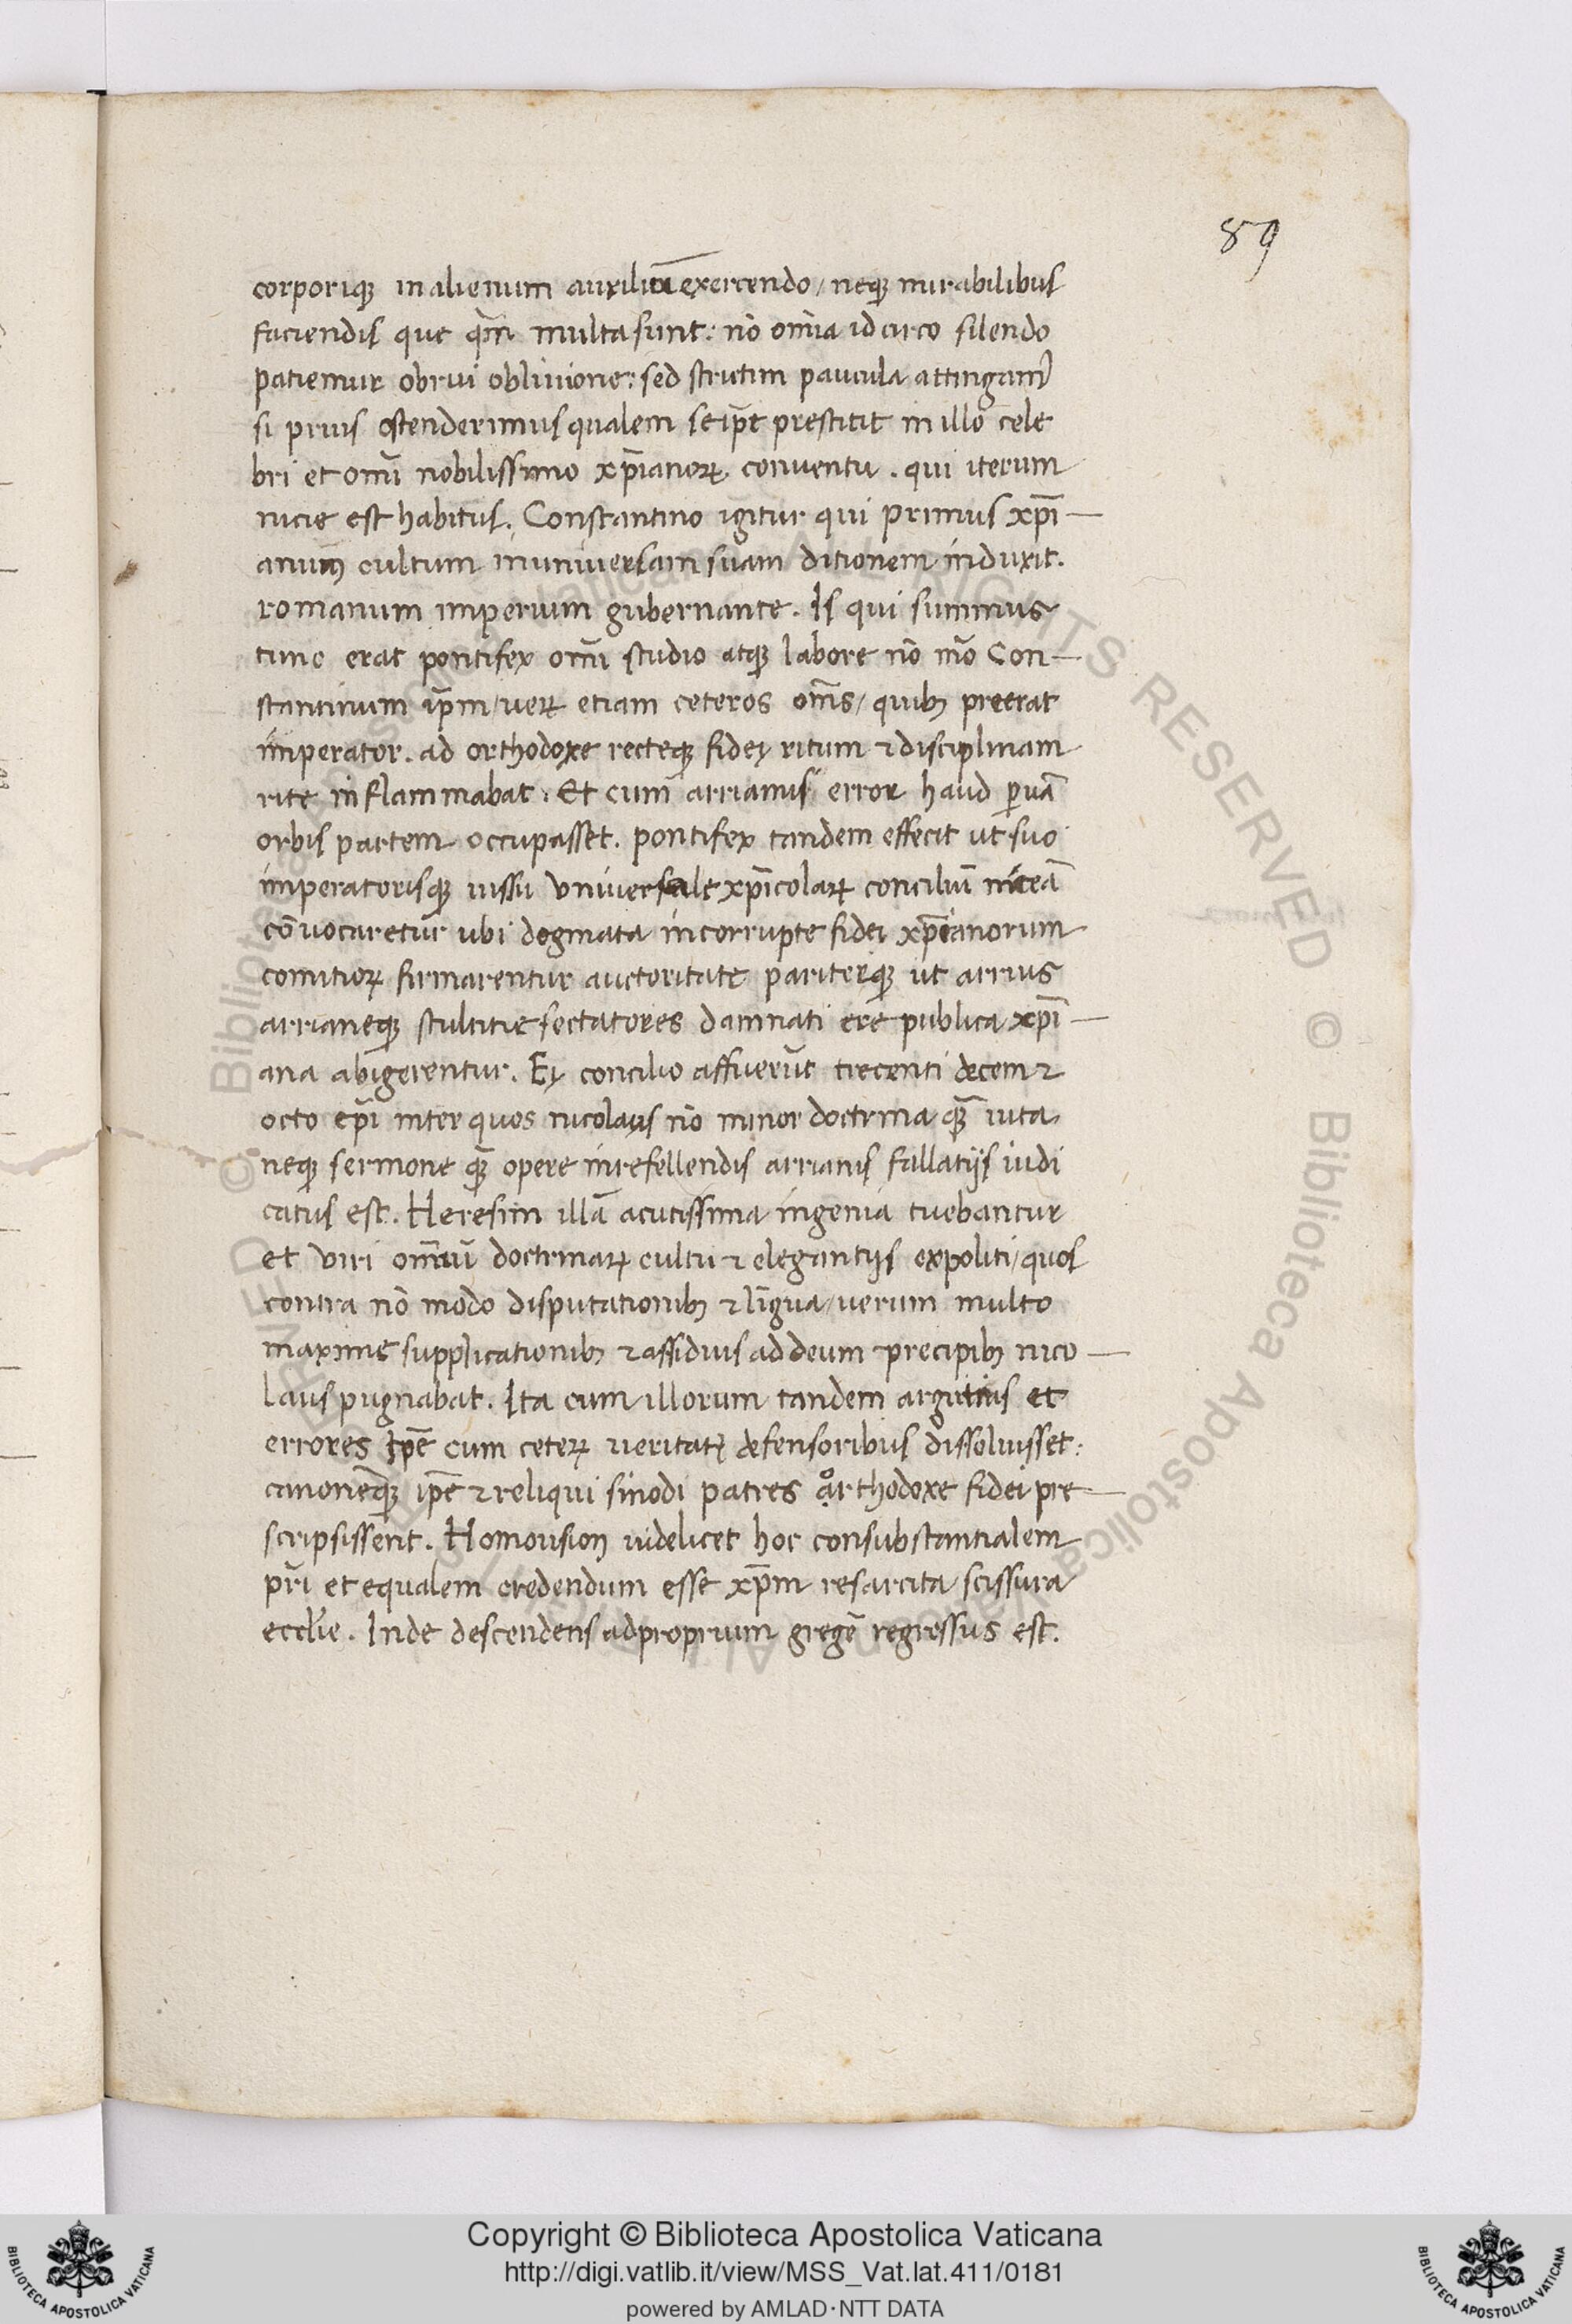 89
corporiqꝫ in alienum auxiliū exercendo / neqꝫ mirabilibus
faciendis que qm̄ multa sunt: nō om̄ia idcirco silendo
patiemur obrui obliuione: sed strictim paucula attingam᾽
si prius ostenderimus qualem se ip̄e prestitit in illo cele
bri et om̄i nobilissimo xp̄ianorꝝ conuentu . qui iterum
nicie est habitus. Constantino igitur qui primus xp̄i
anum cultum in uniuersam suam ditionem induxit.
romanum imperium gubernante. Is qui summus
tunc erat pontifex om̄i studio atqꝫ labore nō mō Con
stantinum ip̄m / uerꝝ etiam ceteros om̄s / quibꝫ preerat
imperator . ad orthodoxe recteqꝫ fidei ritum ⁊ disciplinam
rite inflammabat . Et cum arrianus error haud ꝑuā
orbis partem occupasset. pontifex tandem effecit ut suo
imperatorisqꝫ iussu vniuersale xp̄icolarꝝ conciliū niceā
cōuocaretur ubi dogmata incorrupte fidei xp̄ianorum
comitiorꝝ firmarentur auctoritate pariterqꝫ ut arrius
arrianeqꝫ stultitie sectatores damnati ere publica xp̄i
ana abigerentur. Ei concilio affuerūt trecenti decem ⁊
octo ep̄i inter quos nicolaus nō minor doctrina qꝫ̄ iuta
neqꝫ sermone qꝫ̄ opere in refellendis arrianis fallatijs iudi
catus est. Heresim illā acutissima ingenia tuebantur
et viri om̄iū doctrinarꝝ cultu ⁊ elegantijs expoliti / quos
contra nō modo disputationibꝫ ⁊ lingua / uerum multo
maxime supplicationibꝫ ⁊ assiduis ad deum precipibꝫ nico
laus pugnabat. Ita cum illorum tandem argutias et
errores Ip̄e cum ceterꝝ ueritatꝭ defensoribus dissoluisset:
canonēqꝫ ip̄e ⁊ reliqui sinodi patres orthodoxe fidei pre
scripsissent. Homousion uidelicet hoc consubstantialem
pr̄i et equalem credendum esse xp̄m resarcita scissura
eccl̄ie. Inde descendens ad proprium gregē regressus est.
Copyright © Biblioteca Apostolica Vaticana
http://digi.vatlib.it/view/MSS_Vat.lat.411/0181
powered by AMLAD·NTT DATA